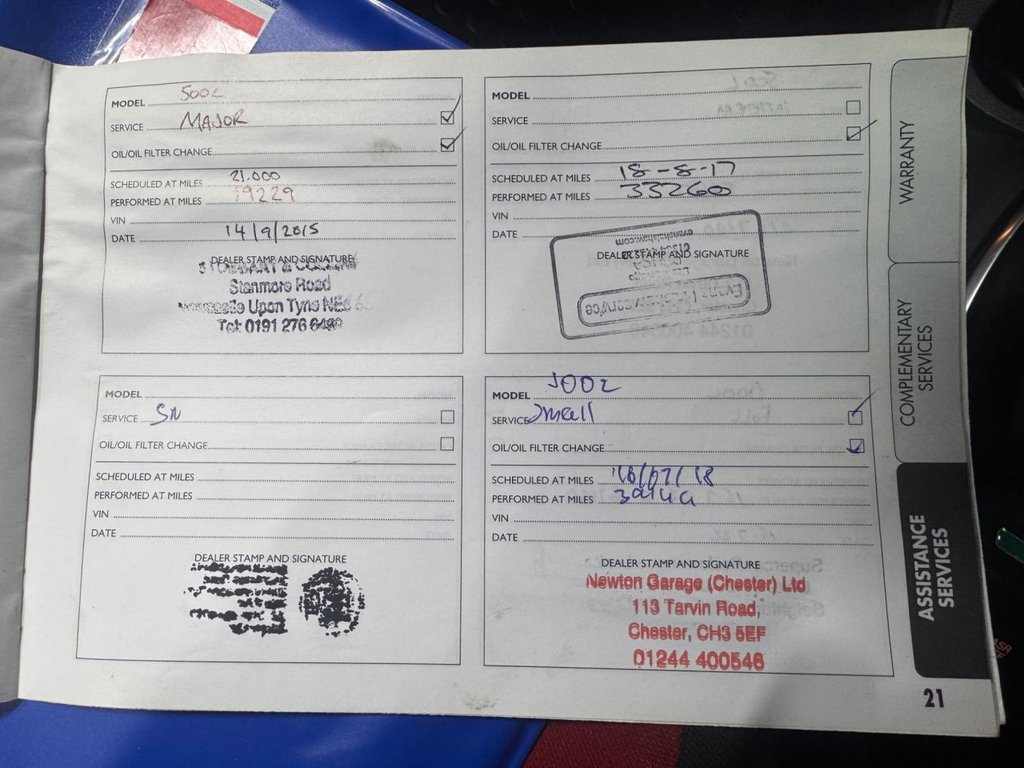 MODEL 500L
SERVICE MAJOR
OIL/OIL FILTER CHANGE
SCHEDULED AT MILES 21.000
PERFORMED AT MILES 19229
VIN
DATE 14/9/2015
DEALER STAMP AND SIGNATURE
Stanmore Road
Newcastle Upon Tyne NE6
Tel: 0191 276 6490
MODEL
SERVICE
OIL/OIL FILTER CHANGE
SCHEDULED AT MILES 18-8-17
PERFORMED AT MILES 33260
VIN
DATE
DEALER STAMP AND SIGNATURE
evanshalshaw.com
MODEL
SERVICE SN
OIL/OIL FILTER CHANGE
SCHEDULED AT MILES
PERFORMED AT MILES
VIN
DATE
DEALER STAMP AND SIGNATURE
MODEL 500L
SERVICE Small
OIL/OIL FILTER CHANGE
SCHEDULED AT MILES 16/07/18
PERFORMED AT MILES
VIN
DATE
DEALER STAMP AND SIGNATURE
Newton Garage (Chester) Ltd
113 Tarvin Road,
Chester, CH3 5EF
01244 400546
WARRANTY
COMPLEMENTARY
SERVICES
ASSISTANCE
SERVICES
21